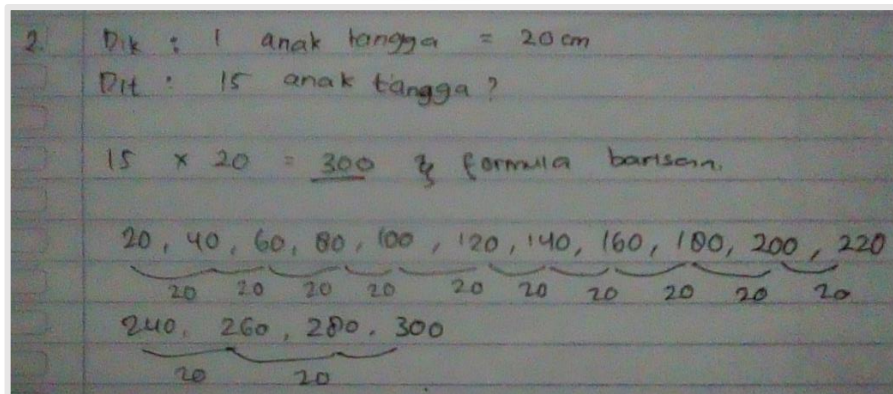 2. Dik : 1 anak tangga = 20 cm
Dit : 15 anak tangga ?
15 × 20 = 300 & formula barisan.
20, 40, 60, 80, 100, 120, 140, 160, 180, 200, 220
20 20 20 20 20 20 20 20 20 20
240, 260, 280, 300
20 20